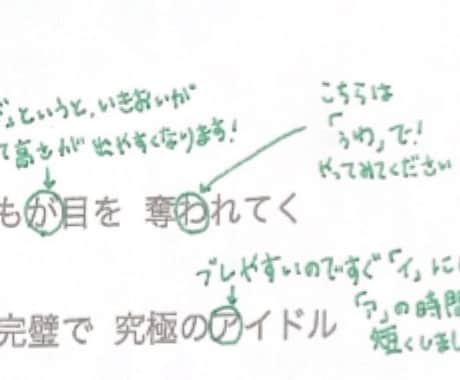 」というと、いきおいが
て高さが出やすくなります!
こちらは
「うわ」で!
やってみてください
もが目を 奪われてく
ブレやすいのですぐ「イ」に
「ア」の時間
短くしまし
完璧で 究極のアイドル